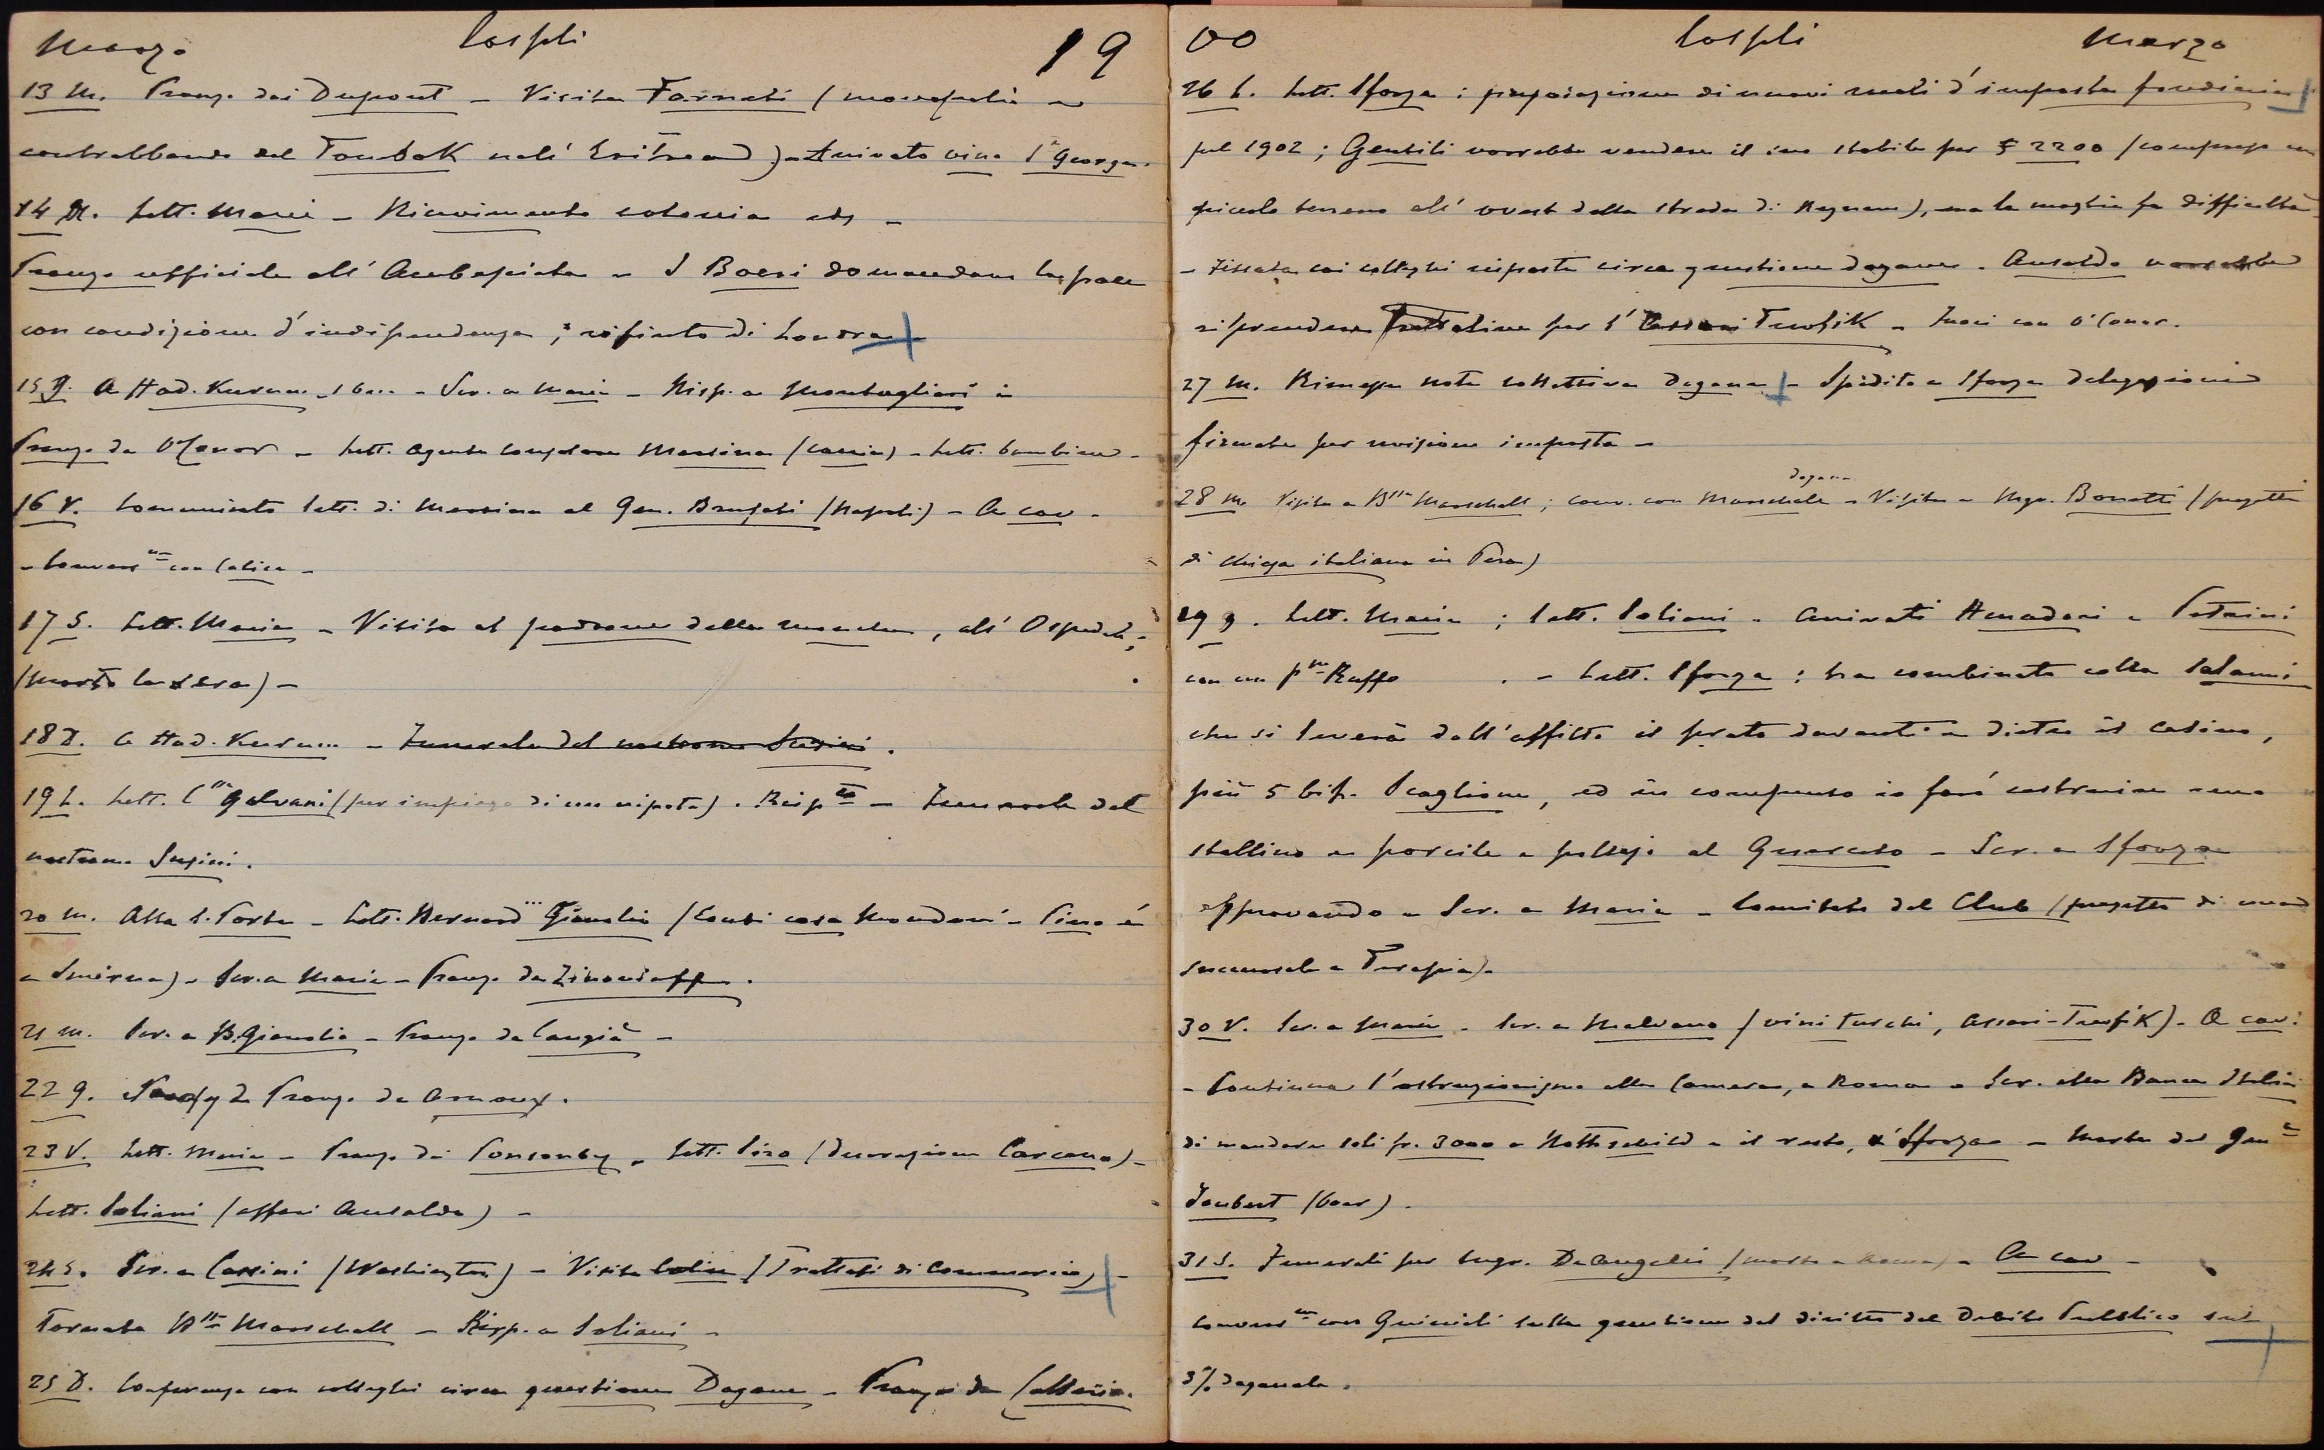 Marzo Cospli 19
13 M. Pranzo dai Dupont – Visita Fornati (monopolio e
contrabbando del Toumbak nell' Eritrea) – Arrivato vino S. George.
14 M. Lett. Maria – Ricevimento colonia
Pranzo ufficiale all' Ambasciata – I Boeri domandano la pace
con condizione d'indipendenza; rifiuto di Londra
15 G. A Had. Keru – Scr. a Maria – Risp. a Montagliari
Pranzo da O'Conor – Lett. Agente Consolare Messina – Lett. bambine –
16 V. Comunicato lett. di Messina al Gen. Brusati (Napoli) – A cav –
– Convers.ne con Calice –
17 S. Lett. Maria – Visita al padrone della, all' Ospedale
(morto la sera) –
18 D. A Had. Keru – Funerale del nostromo Susini.
19 L. Lett. C.ssa Galvani (per impiego di un nipote). Risp.to – Funerale del
nostromo Susini.
20 M. Alla S. Porta – Lett. Bernard Gianolio (Conti casa Mondovì – Pino è
a Smirne) – Scr. a Maria – Pranzo da Zinovieff.
21 M. Scr. a B. Gianolio – Pranzo da Cangià –
22 G. Pranzo da Arnoux.
23 V. Lett. Maria – Pranzo da Ponsonby – Lett. Pisa (decorazione Carcano) –
Lett. Soliani (affari Ansaldo) –
24 S. Scr. a Cassini (Washington) – Visita Calice (Trattati di Commercio) –
Tornata B.ssa Marschall – Risp. a Soliani –
25 D. Conferenza con colleghi circa questione Dogane – Pranzo da
00 Cospli Marzo
26 L. Lett. Sforza: proposizione di nuovi ruoli d'imposta fondiaria
pel 1902; Gentili vorrebbe vendere il suo stabile per 2200 (compreso un
piccolo terreno all' ovest della strada di), ma la moglie fa difficoltà
– Fissata coi colleghi risposta circa questione dogane. Ansaldo vorrebbe
riprendere trattative per l' Assari Tewfik – Fuori con O'Conor.
27 M. Rimessa nota collettiva dogana – Spedito a Sforza delegazioni
firmate per revisione imposta –
28 M. Visita a B.ssa Marschall; conv. con Marschall dogana – Visita a Mgr. Bonetti (progetto
di chiesa italiana in Pera)
29 G. Lett. Maria; lett. Soliani – Arrivati Amadori e Petrini
con un P.pe Ruffo. – Lett. Sforza: ha combinato colla Salami
che si leverà dall'affitto il prato davanti e dietro il Casino,
più 5 bif. Scaglione, ed in compenso io farò costruire una
stallino e porcile e pollajo al Querceto – Scr. a Sforza
approvando – Scr. a Maria – Comitato del Club (progetto di una
succursale a Terapia).
30 V. Scr. a Maria – Scr. a Malvano (vini turchi, Assari-Tewfik). A cav.
– Continua l'ostruzionismo alla Camera, a Roma – Scr. alla Banca Italia
di mandare soli fr. 3000 a Rothschild e il resto, a Sforza – Morte del Gen.le
Joubert (boer).
31 S. Funerali per Mgr. De Angelis (morto a Roma) – A cav –
Convers.ne con Guicioli sulla questione del diritto del Debito Pubblico sul
3% doganale.